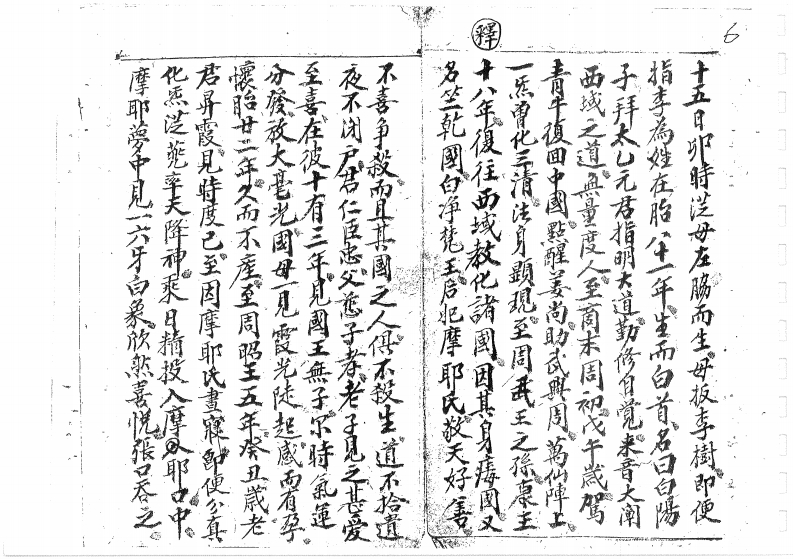 6
釋
十五日卯時從母左脇而生母扳李樹即便
指李為姓在胎八十一年生而白首名曰白陽
子拜太乙元君指明大道勤修自覺來音大闡
西域之道無量度人至商末周初戊午歲駕
青牛復回中國點醒姜尚助武興周萬仙陣上
一炁曾化三清法身顯現至周武王之孫康王
十八年復往西域教化諸國因其身瘘國又
名竺乾國白净梵王后妃摩耶氏敬天好善
不喜爭殺而且其國之人俱不殺生道不拾遺
夜不闭户君仁臣忠父慈子孝老子見之甚愛
至喜在彼十有三年見國王無子尔時氣運
分發放大毫光國母一見霞光陡起感而有孕
懷胎廿二年久而不產至周昭王五年癸丑歲老
君昇霞見時度已至因摩耶氏晝寢即便分真
化炁從兠率天降神乘日精投入摩耶口中
摩耶夢中見一六牙白象欣然喜悦張口吞之